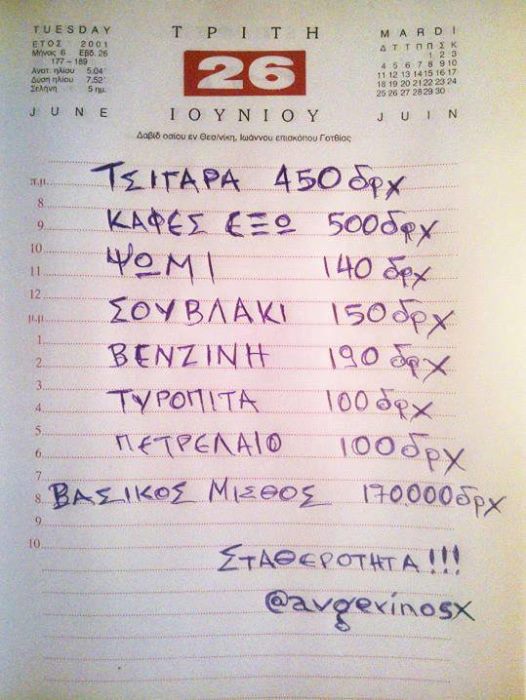 TUESDAY
ΕΤΟΣ 2001
Μήνας 6 Εβδ. 26
177 – 189
Ανατ. ηλίου 5.04΄
Δύση ηλίου 7.52΄
Σελήνη 5 ημ.
JUNE
ΤΡΙΤΗ
26
ΙΟΥΝΙΟΥ
MARDI
Δ Τ Τ Π Π Σ Κ
1 2 3
4 5 6 7 8 9 10
11 12 13 14 15 16 17
18 19 20 21 22 23 24
25 26 27 28 29 30
JUIN
Δαβίδ οσίου εν Θεσ/νίκη, Ιωάννου επισκόπου Γοτθίας
π.μ. ΤΣΙΓΑΡΑ 450 δρχ
8
ΚΑΦΕΣ ΕΞΩ 500 δρχ
9
10
ΨΩΜΙ 140 δρχ
11
12
ΣΟΥΒΛΑΚΙ 150 δρχ
μ.μ.
1
ΒΕΝΖΙΝΗ 190 δρχ
2
3
ΤΥΡΟΠΙΤΑ 100 δρχ
4
5
ΠΕΤΡΕΛΑΙΟ 100 δρχ
6
7
8 ΒΑΣΙΚΟΣ ΜΙΣΘΟΣ 170.000 δρχ
9
10
ΣΤΑΘΕΡΟΤΗΤΑ!!!
@avgerinosx